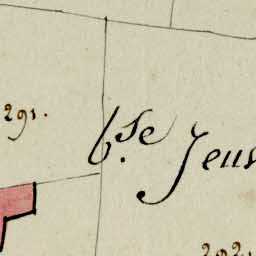 291.
6.se Jeus
292.